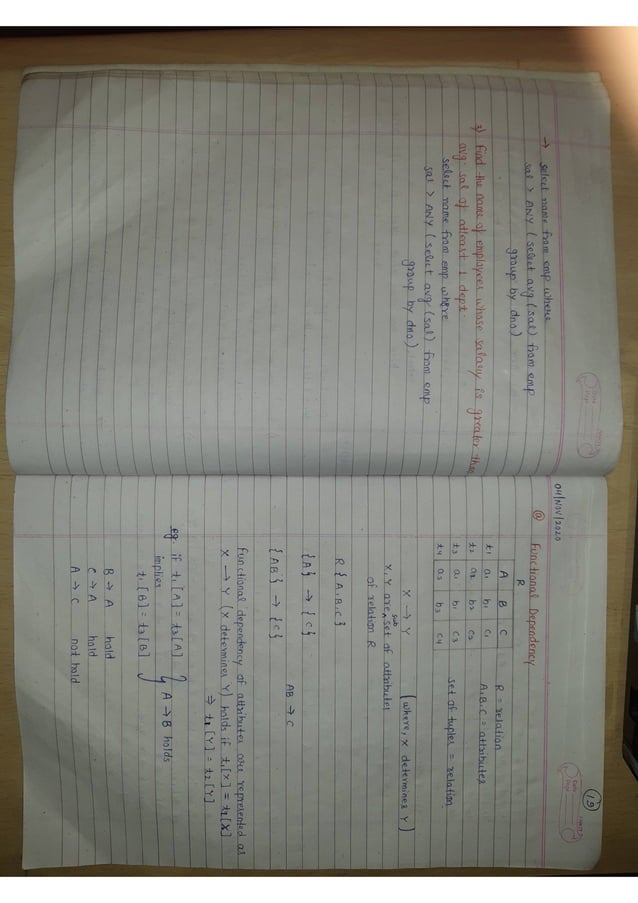 → select name from emp where
sal > ANY ( select avg (sal) from emp
group by dno)
3) Find the name of employees whose salary is greater than
avg. sal of atleast 1 dept.
select name from emp where
sal > ANY ( select avg (sal) from emp
group by dno)
15
04/NOV/2020
@ Functional Dependency
R
A B C
t1 a1 b1 c1
t2 a2 b2 c2
t3 a1 b1 c3
t4 a3 b3 c4
R = relation
A, B, C = attributes
set of tuples = relation
X → Y [where, X determines Y]
X, Y are sub set of attributes
of relation R
R {A, B, C}
{A} → {C}
AB → C
{AB} → {C}
Functional dependency of attributes are represented as
X → Y (X determines Y) holds if t1[X] = t2[X]
⇒ t1[Y] = t2[Y]
eg if t1[A] = t3[A]
implies
t1[B] = t3[B]
} A → B holds
B → A hold
C → A hold
A → C not hold